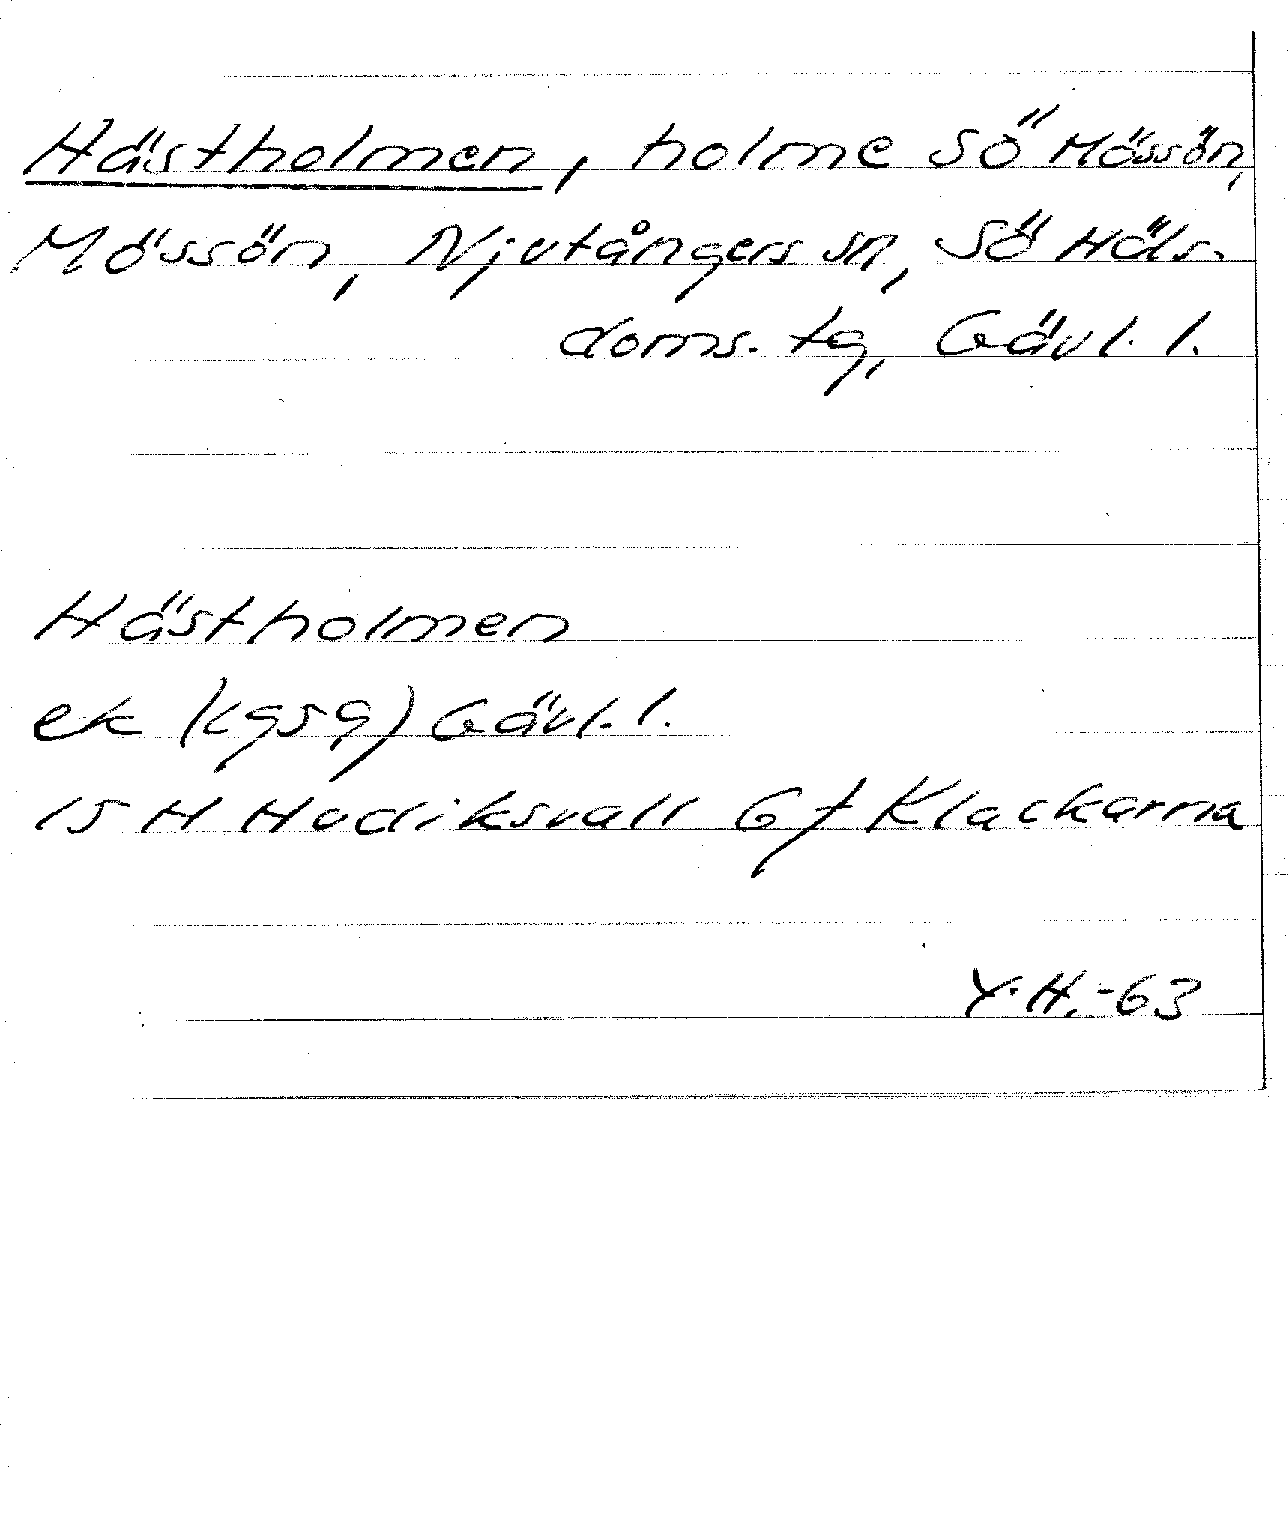 Hästholmen, holme SÖ Mössön,
Mössön, Njutångers sn, SÖ Häls.
doms. tg, Gävl. l.
Hästholmen
ek (1959) Gävl. l.
15 H Hudiksvall 6 f Klackarna
Y.H.-63